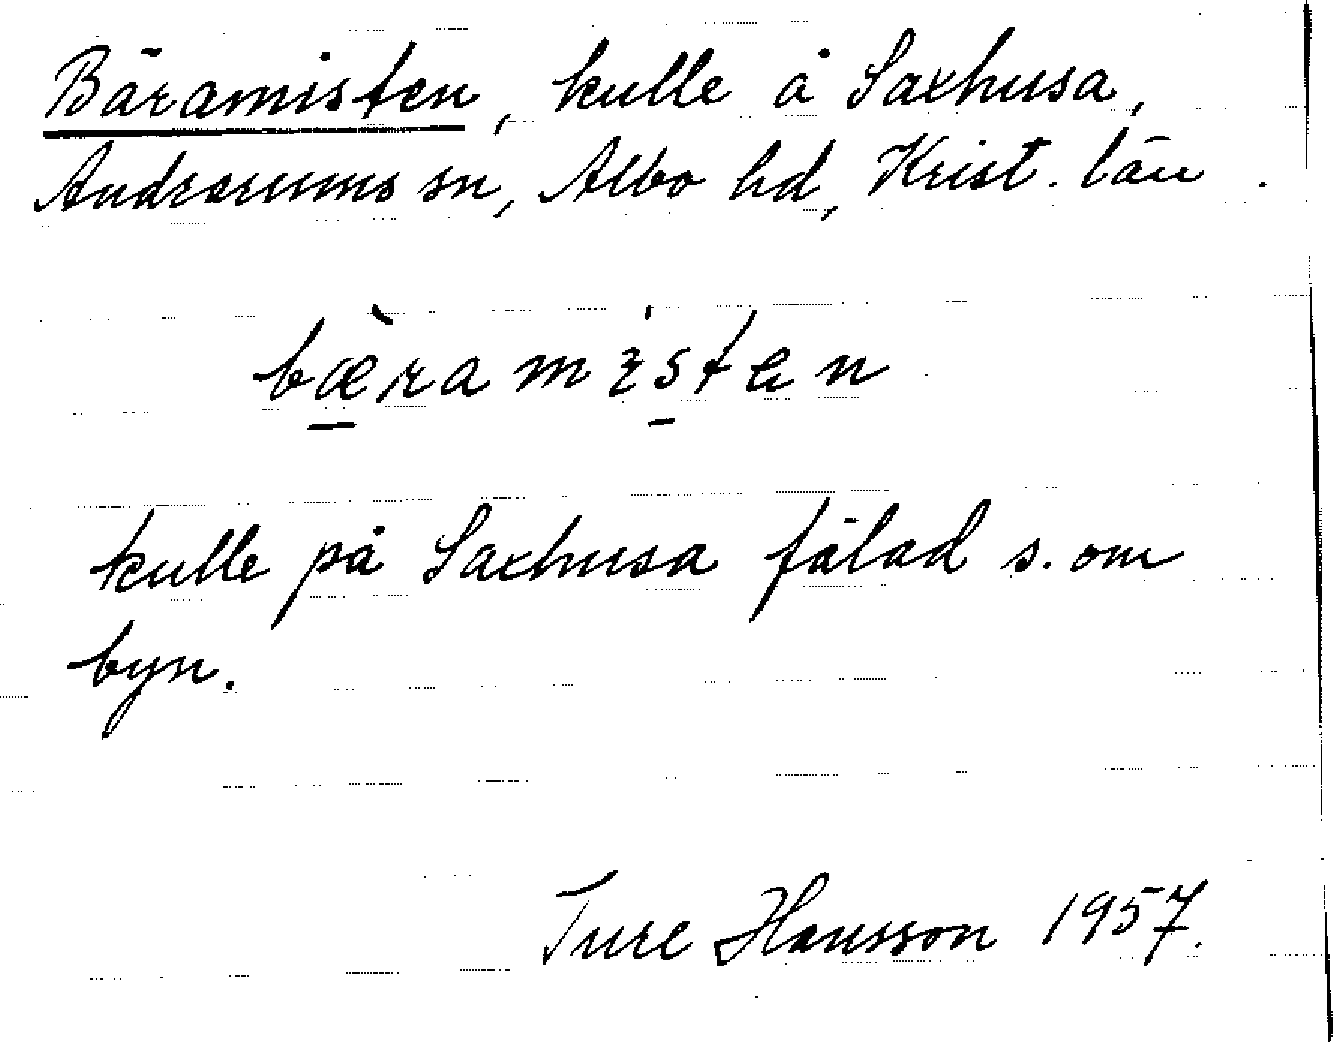 Bäramisten, kulle å Saxhusa,
Andrarums sn, Albo hd, Krist. län.
bæ̀ramìsten
kulle på Saxhusa fälad s. om
byn.
Ture Hansson 1957.